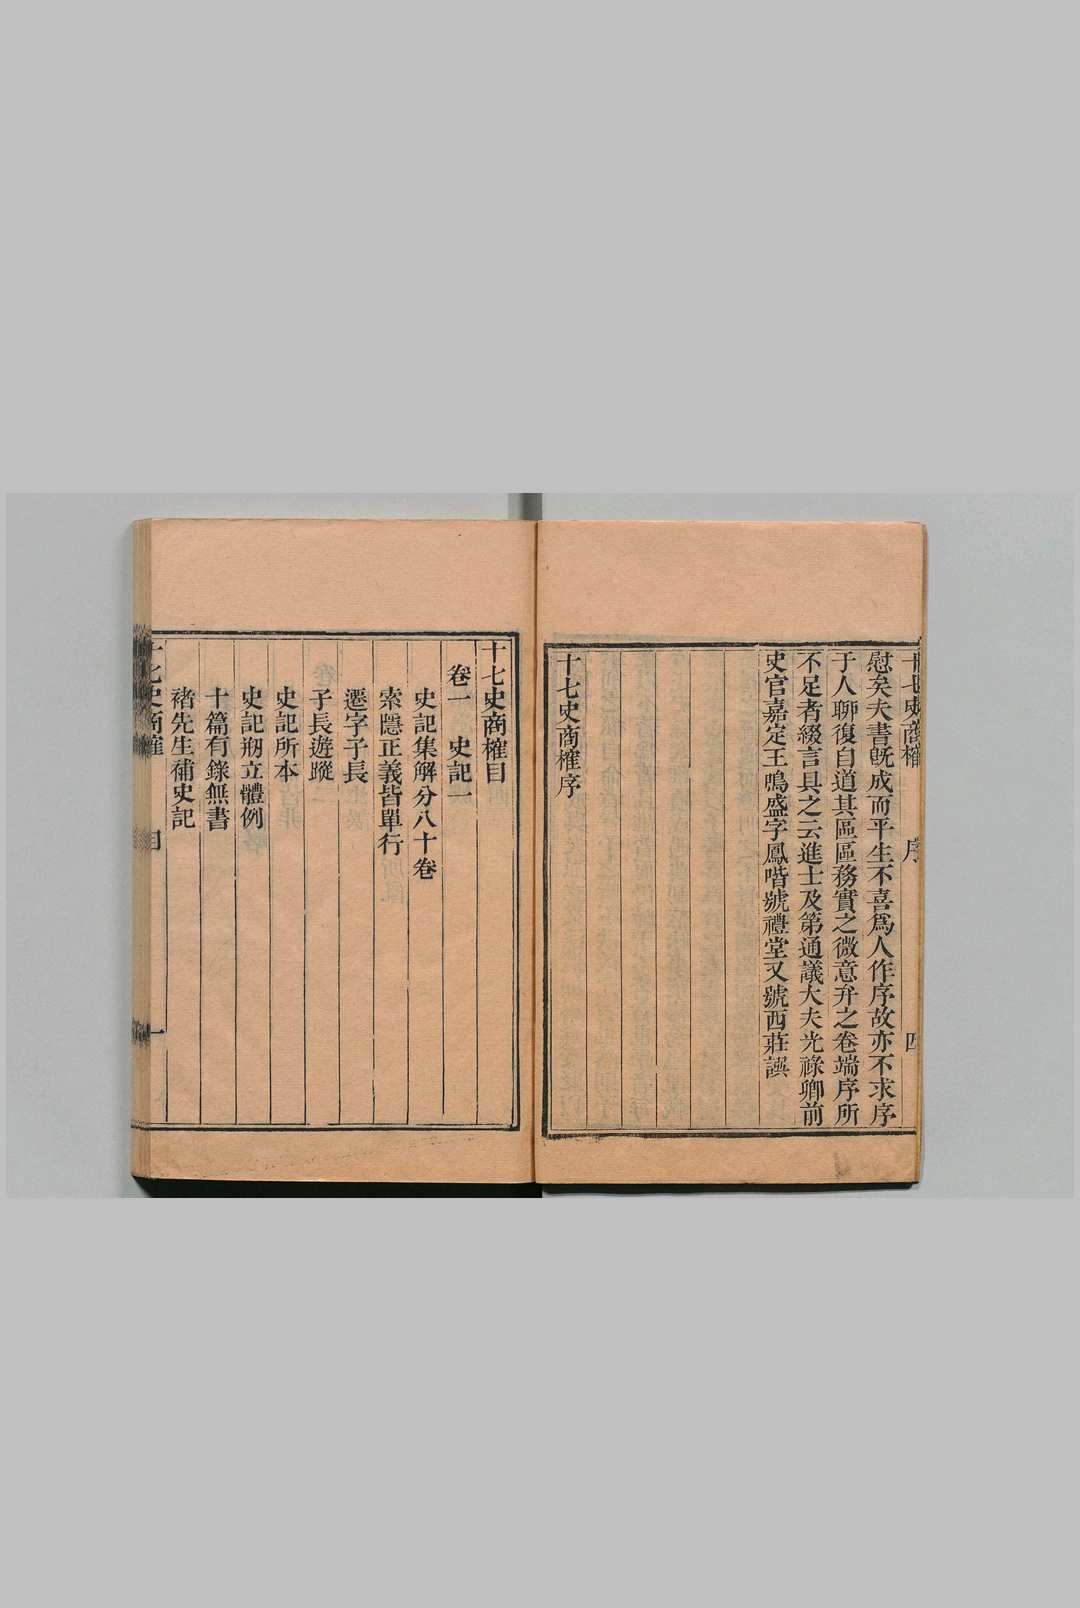 十七史商榷 序 四
慰矣夫書旣成而平生不喜爲人作序故亦不求序
于人聊復自道其區區務實之微意弁之卷端序所
不足者綴言具之云進士及第通議大夫光祿卿前
史官嘉定王鳴盛字鳳喈號禮堂又號西莊譔
十七史商榷序
十七史商榷目
卷一 史記一
史記集解分八十卷
索隱正義皆單行
遷字子長
子長遊蹤
史記所本
史記刱立體例
十篇有錄無書
褚先生補史記
十七史商榷 目 一